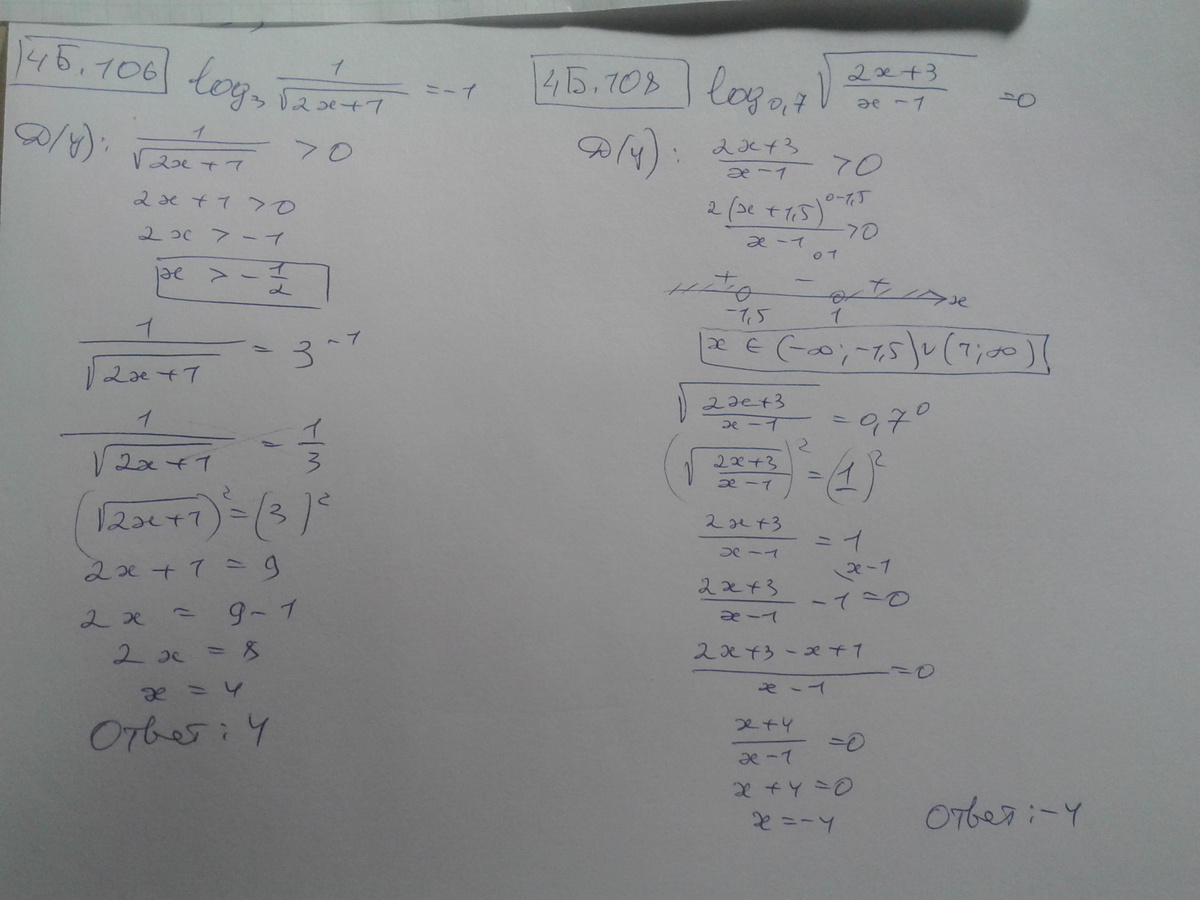 4Б.106 log₃ 1/√(2x+1) = -1
Д(y): 1/√(2x+1) > 0
2x+1 > 0
2x > -1
x > -1/2
1/√(2x+1) = 3⁻¹
1/√(2x+1) = 1/3
(√(2x+1))² = (3)²
2x+1 = 9
2x = 9-1
2x = 8
x = 4
Ответ: 4
4Б.108 log₀,₇ √((2x+3)/(x-1)) = 0
Д(y): (2x+3)/(x-1) > 0
2(x+1,5)/(x-1) > 0 0-1,5 01
+ - +
-1,5 1 x
x ∈ (-∞; -1,5) ∪ (1; ∞)
√((2x+3)/(x-1)) = 0,7⁰
(√((2x+3)/(x-1)))² = (1)²
(2x+3)/(x-1) = 1
x-1
(2x+3)/(x-1) - 1 = 0
(2x+3-x+1)/(x-1) = 0
(x+4)/(x-1) = 0
x+4 = 0
x = -4
Ответ: -4